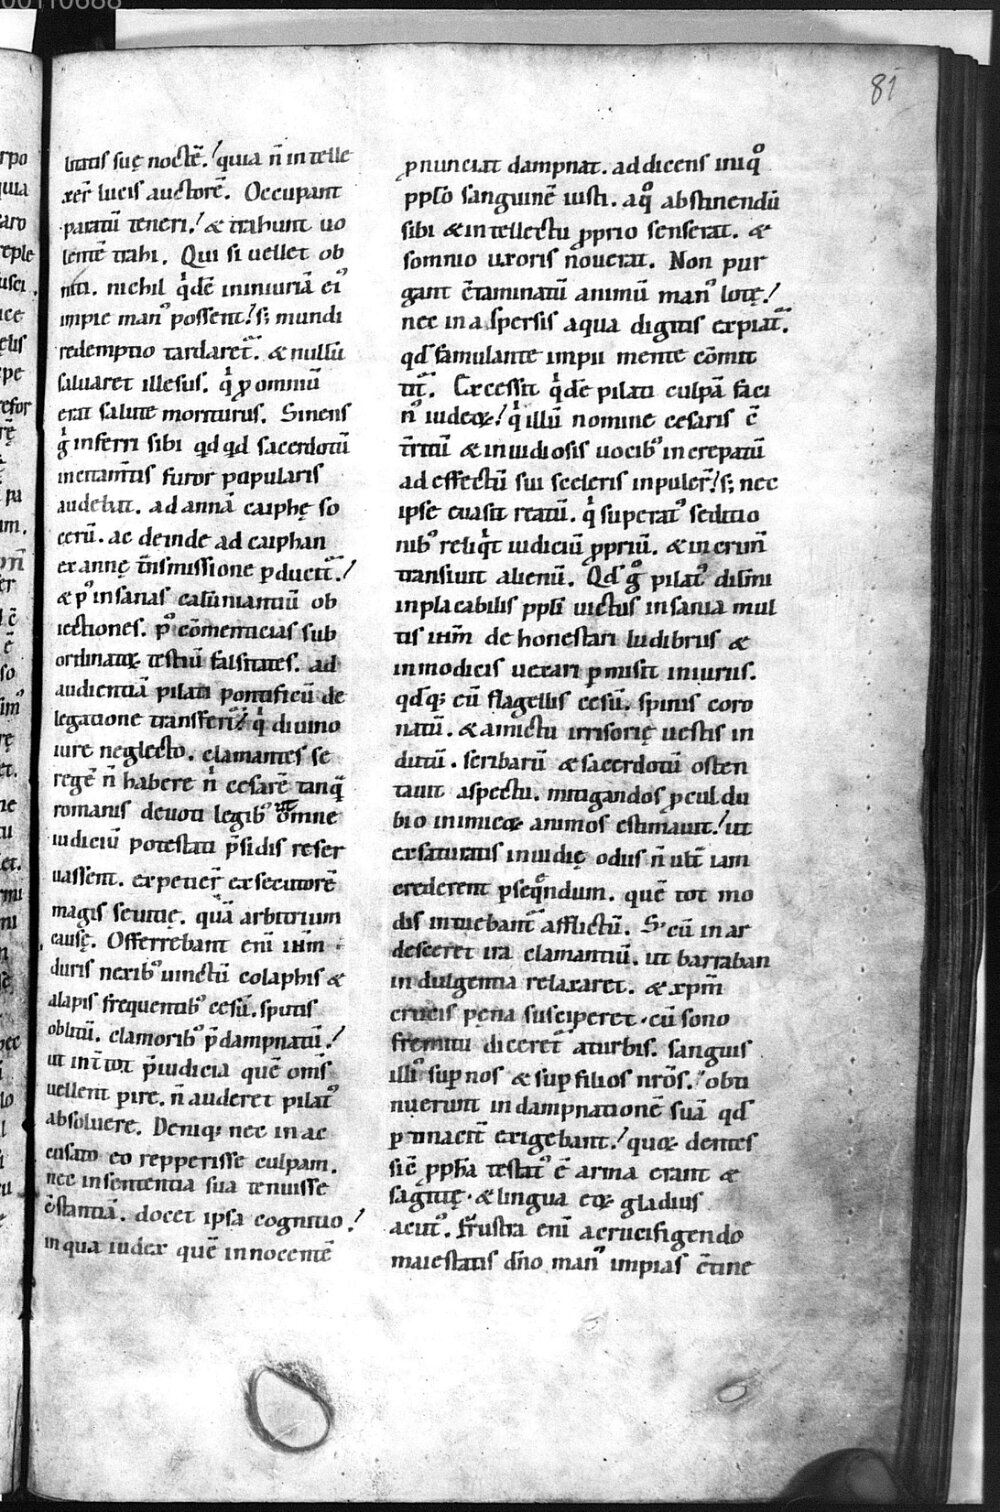 81
litatis suę noctē. quia n̄ intelle
xer̄ lucis auctorē. Occupant
paratū teneri. & trahunt uo
lentē trahi. Qui si uellet ob
niti. nichil q̇dē iniuriā ei᾽
impie man᾽ possent. s; mundi
redemptio tardaret᷑. & nullū
saluaret illesus. q̇ ꝓ omniū
erat salute moriturus. Sinens
g̊ inferri sibi qd qd sacerdotū
incitam̄tis furor popularis
audebat. ad annā caiphę so
cerū. ac deinde ad caiphan
ex annę t̄nsmissione ꝑducit᷑.
& p᾽ insanas calūniantiū ob
iectiones. p᾽ cōmenticias sub
ordinatoꝝ testiū falsitates. ad
audientiā pilati pontificū de
legatione transfert᷑. q̇ diuino
iure neglecto. clamantes se
regē n̄ habere n̄ cesarē tanq̄
romanis deuoti legib᾽ ut omne
iudiciū potestati p̄sidis reser
uassent. expetier̄ exsecutorē
magis seuitię. quā arbitrium
causę. Offerrebant eni ihm̄
duris nexib᾽ uinctū colaphis &
alapis frequentib᾽ cesū. sputis
oblitū. clamorib᾽ p̄dampnatū.
ut int̄ tot p̄iudicia quē om̄s
uellent ꝑire. n̄ auderet pilat᾽
absoluere. Deniq; nec in ac
cusato eo repperisse culpam.
nec in sententia sua tenuisse
c̄stantiā. docet ipsa cognitio.
in qua iudex quē innocentē
ꝓnunciat dampnat. addicens iniq̊
pplo sanguinē iusti. a q̊ abstinendū
sibi & intellectu ꝓprio senserat. &
somnio uxoris nouerat. Non pur
gant c̄taminatū animū man᾽ lotę.
nec in aspersis aqua digitis expiat᷑.
qd famulante impii mente cōmit
tit᷑. Excessit q̇dē pilati culpā faci
n᾽ iudeoꝝ. q̇ illū nomine cesaris c̄
t̄ritū & inuidiosis uocib᾽ increpatū
ad effectū sui sceleris inpuler̄. s; nec
ipse euasit reatū. q̇ superat᾽ seditio
nib᾽ reliq̇t iudiciū ꝓpriū. & in crim̄
transiuit alienū. Qd g̊ pilat᾽ dilcmi
inplacabilis ppli uictus insania mul
tis ihm̄ dehonestari ludibriis &
inmodicis uexari ꝑmisit iniuriis.
qdq; eū flagellis cesū. spinis coro
natū. & amictu irrisorię uestis in
dutū. scribarū & sacerdotū osten
tauit aspectu. mitigandos ꝓculdu
bio inimicoꝝ animos estimauit. ut
exsaturatis inuidię odiis n̄ ult̄ iam
crederent ꝑseq̊ndum. quē tot mo
dis intuebant᷑ afflictū. S; cū in ar
desceret ira clamantiū. ut barraban
indulgentia relaxaret. & xpm̄
crucis pena susciperet. cū sono
fremitu diceret᷑ a turbis. sanguis
illi᾽ sup nos & sup filios nros. obti
nuerunt in dampnationē suā qd
ꝑtinacit᷑ exigebant. quoꝝ dentes
sic̄ ppha testat᾽ ē arma erant &
sagittę. & lingua eoꝝ gladius
acut᾽. Frustra eni a crucifigendo
maiestatis dn̄o man᾽ impias c̄tine